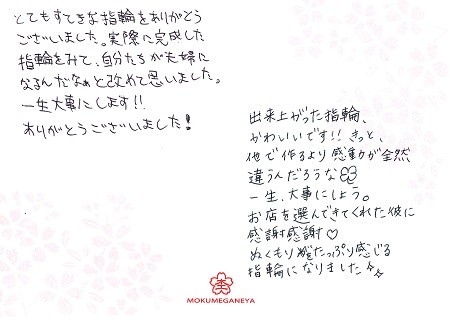 とてもすてきな指輪をありがとう
ございました。実際に完成した
指輪をみて、自分たちが夫婦に
なるんだなぁと改めて思いました。
一生大事にします!!
ありがとうございました!
出来上がった指輪、
かわいいです!! きっと、
他で作るより感動が全然
違うんだろうな
一生、大事にしよう。
お店を選んできてくれた彼に
感謝感謝♡
ぬくもりがたっぷり感じる
指輪になりました
MOKUMEGANEYA